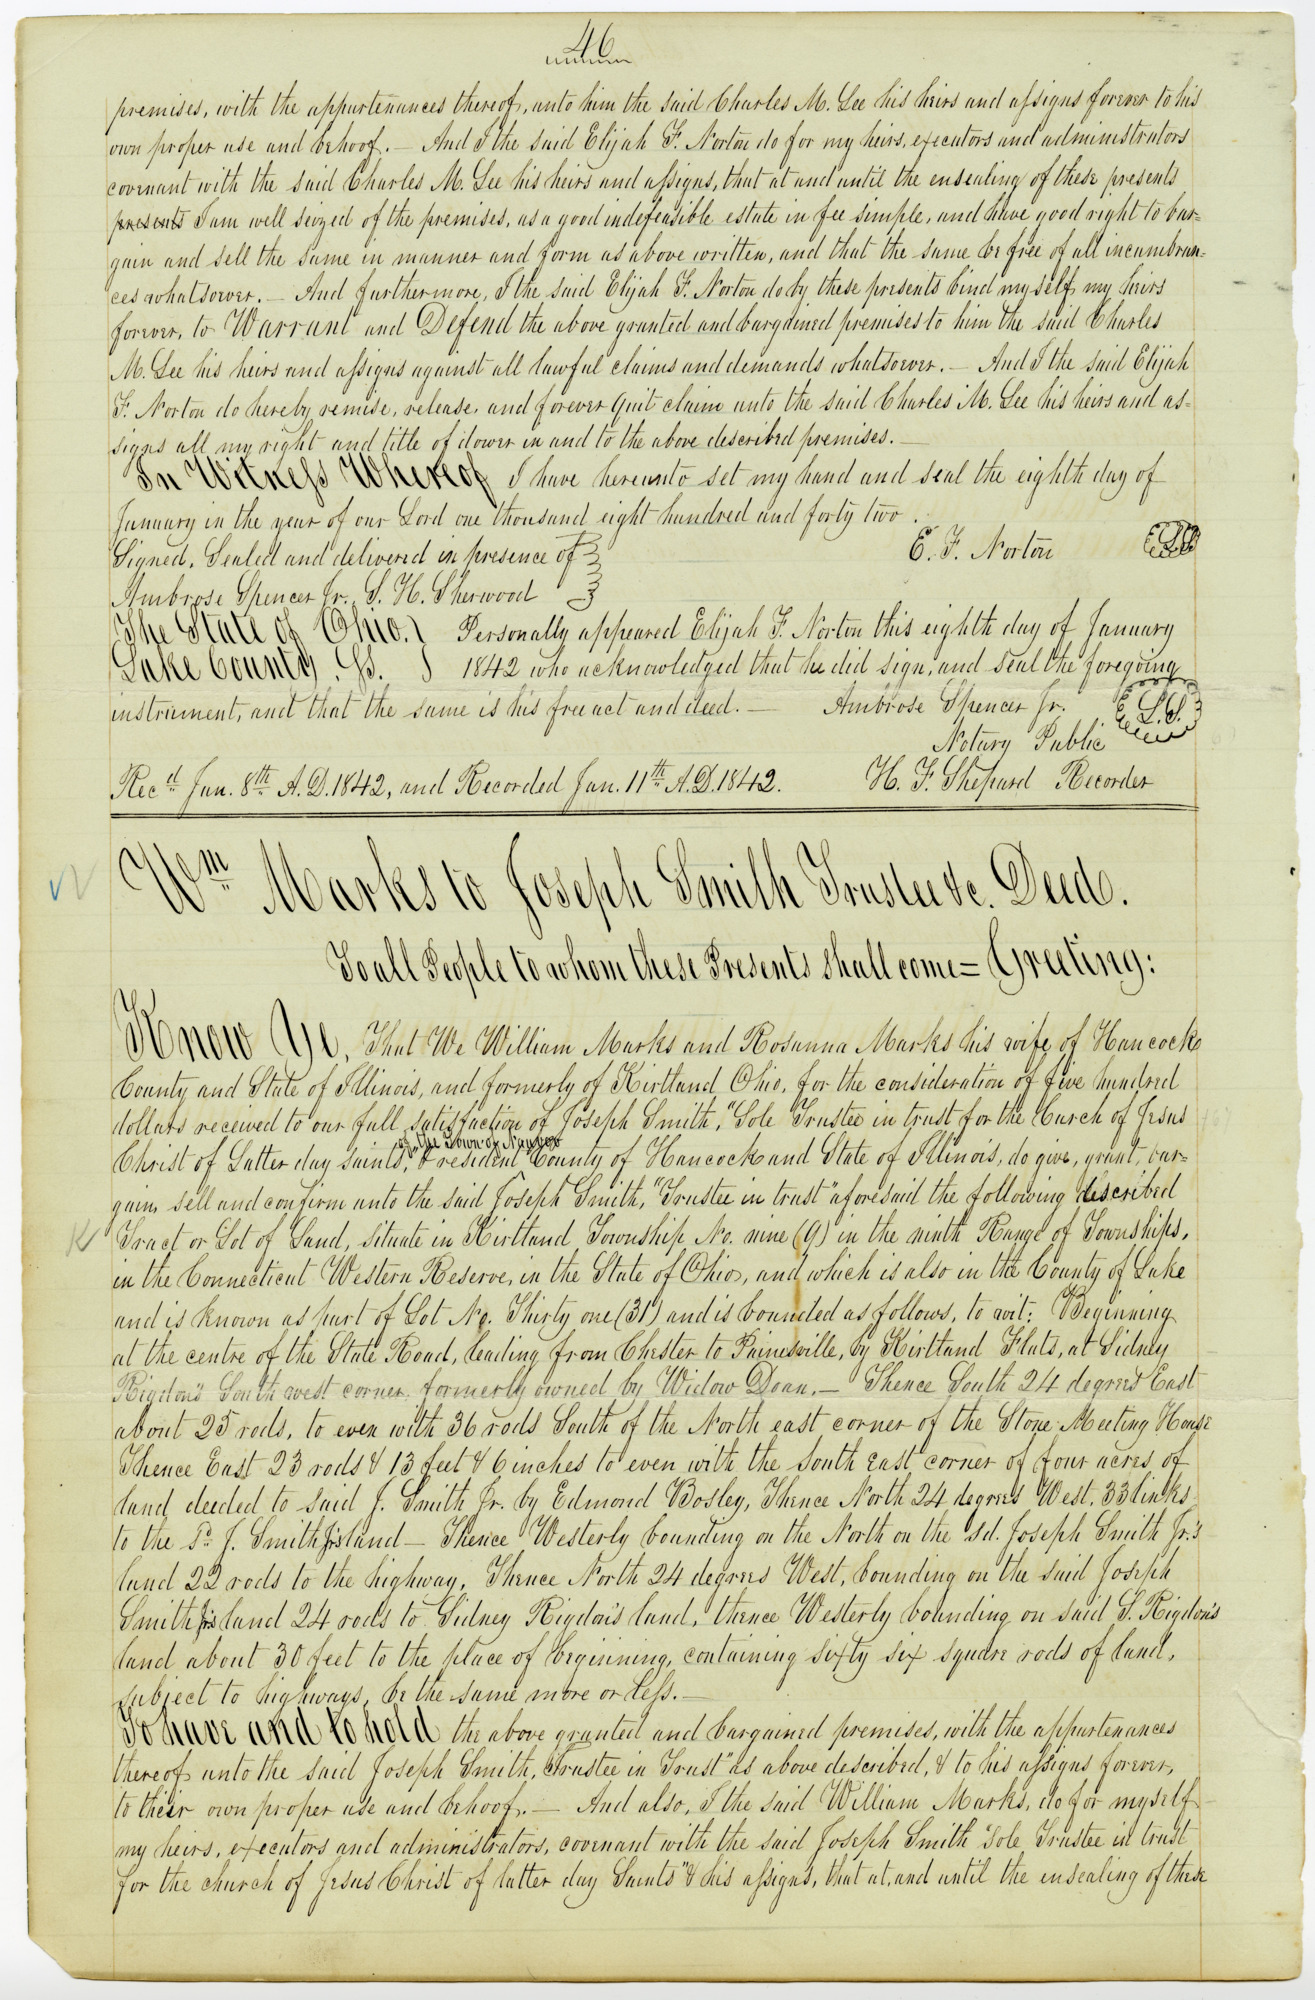 46
premises, with the appurtenances thereof, unto him the said Charles M. Lee his heirs and assigns forever to his
own proper use and behoof. — And I the said Elijah F. Norton do for my heirs, executors and administrators
covenant with the said Charles M. Lee his heirs and assigns, that at and until the ensealing of these presents
presents I am well seized of the premises, as a good indefeasible estate in fee simple, and have good right to bar=
gain and sell the same in manner and form as above written, and that the same be free of all incumbran=
ces whatsoever. — And furthermore, I the said Elijah F. Norton do by these presents bind myself my heirs
forever, to Warrant and Defend the above granted and bargained premises to him the said Charles
M. Lee his heirs and assigns against all lawful claims and demands whatsoever. — And I the said Elijah
F. Norton do hereby remise, release, and forever Quit claim unto the said Charles M. Lee his heirs and as=
signs all my right and title of dower in and to the above described premises. —
In Witness Whereof I have hereunto set my hand and seal the eighth day of
January in the year of our Lord one thousand eight hundred and forty two.
Signed, Sealed and delivered in presence of } E. F. Norton L.S.
Ambrose Spencer Jr., S. H. Sherwood }
The State of Ohio. } Personally appeared Elijah F. Norton this eighth day of January
Lake County. Ss. } 1842 who acknowledged that he did sign, and seal the foregoing
instrument, and that the same is his free act and deed. — Ambrose Spencer Jr. L.S.
Notary Public
Recd Jan. 8th A.D. 1842, and Recorded Jan. 11th A.D. 1842. H. F. Shepard Recorder
Wm Marks to Joseph Smith Trustee &c. Deed.
To all People to whom these Presents shall come = Greeting:
Know Ye, That We William Marks and Rosanna Marks his wife of Hancock
County and State of Illinois, and formerly of Kirtland Ohio, for the consideration of five hundred
dollars received to our full satisfaction of Joseph Smith, "Sole Trustee in trust for the Church of Jesus
of the Town of Nauvoo
Christ of Latter day saints," President County of Hancock and State of Illinois, do give, grant, bar=
gain, sell and confirm unto the said Joseph Smith, "Trustee in trust" aforesaid the following described
Tract or Lot of Land, situate in Kirtland Township No. nine (9) in the ninth Range of Townships,
in the Connecticut Western Reserve, in the State of Ohio, and which is also in the County of Lake
and is known as part of Lot No. Thirty one (31) and is bounded as follows, to wit: Beginning
at the centre of the State Road, leading from Chester to Painesville, by Kirtland Flats, at Sidney
Rigdon's South west corner, formerly owned by Widow Doan. — Thence South 24 degrees East
about 25 rods, to even with 36 rods South of the North east corner of the Stone Meeting House
Thence East 23 rods & 13 feet & 6 inches to even with the south east corner of four acres of
land deeded to said J. Smith Jr. by Edmond Bosley, Thence North 24 degrees West, 33 links
to the Sd. J. Smith Jr's land — Thence Westerly bounding on the North on the sd. Joseph Smith Jr.'s
land 22 rods to the highway, Thence North 24 degrees West, bounding on the said Joseph
Smith Jr's land 24 rods to Sidney Rigdon's land, thence Westerly bounding on said S. Rigdon's
land about 30 feet to the place of beginning, containing sixty six square rods of land,
subject to highways, be the same more or less. —
To have and to hold the above granted and bargained premises, with the appurtenances
thereof unto the said Joseph Smith, "Trustee in Trust" as above described, & to his assigns forever,
to their own proper use and behoof. — And also, I the said William Marks, do for myself
my heirs, executors and administrators, covenant with the said Joseph Smith "Sole Trustee in trust
for the church of Jesus Christ of latter day Saints" & his assigns, that at, and until the ensealing of these